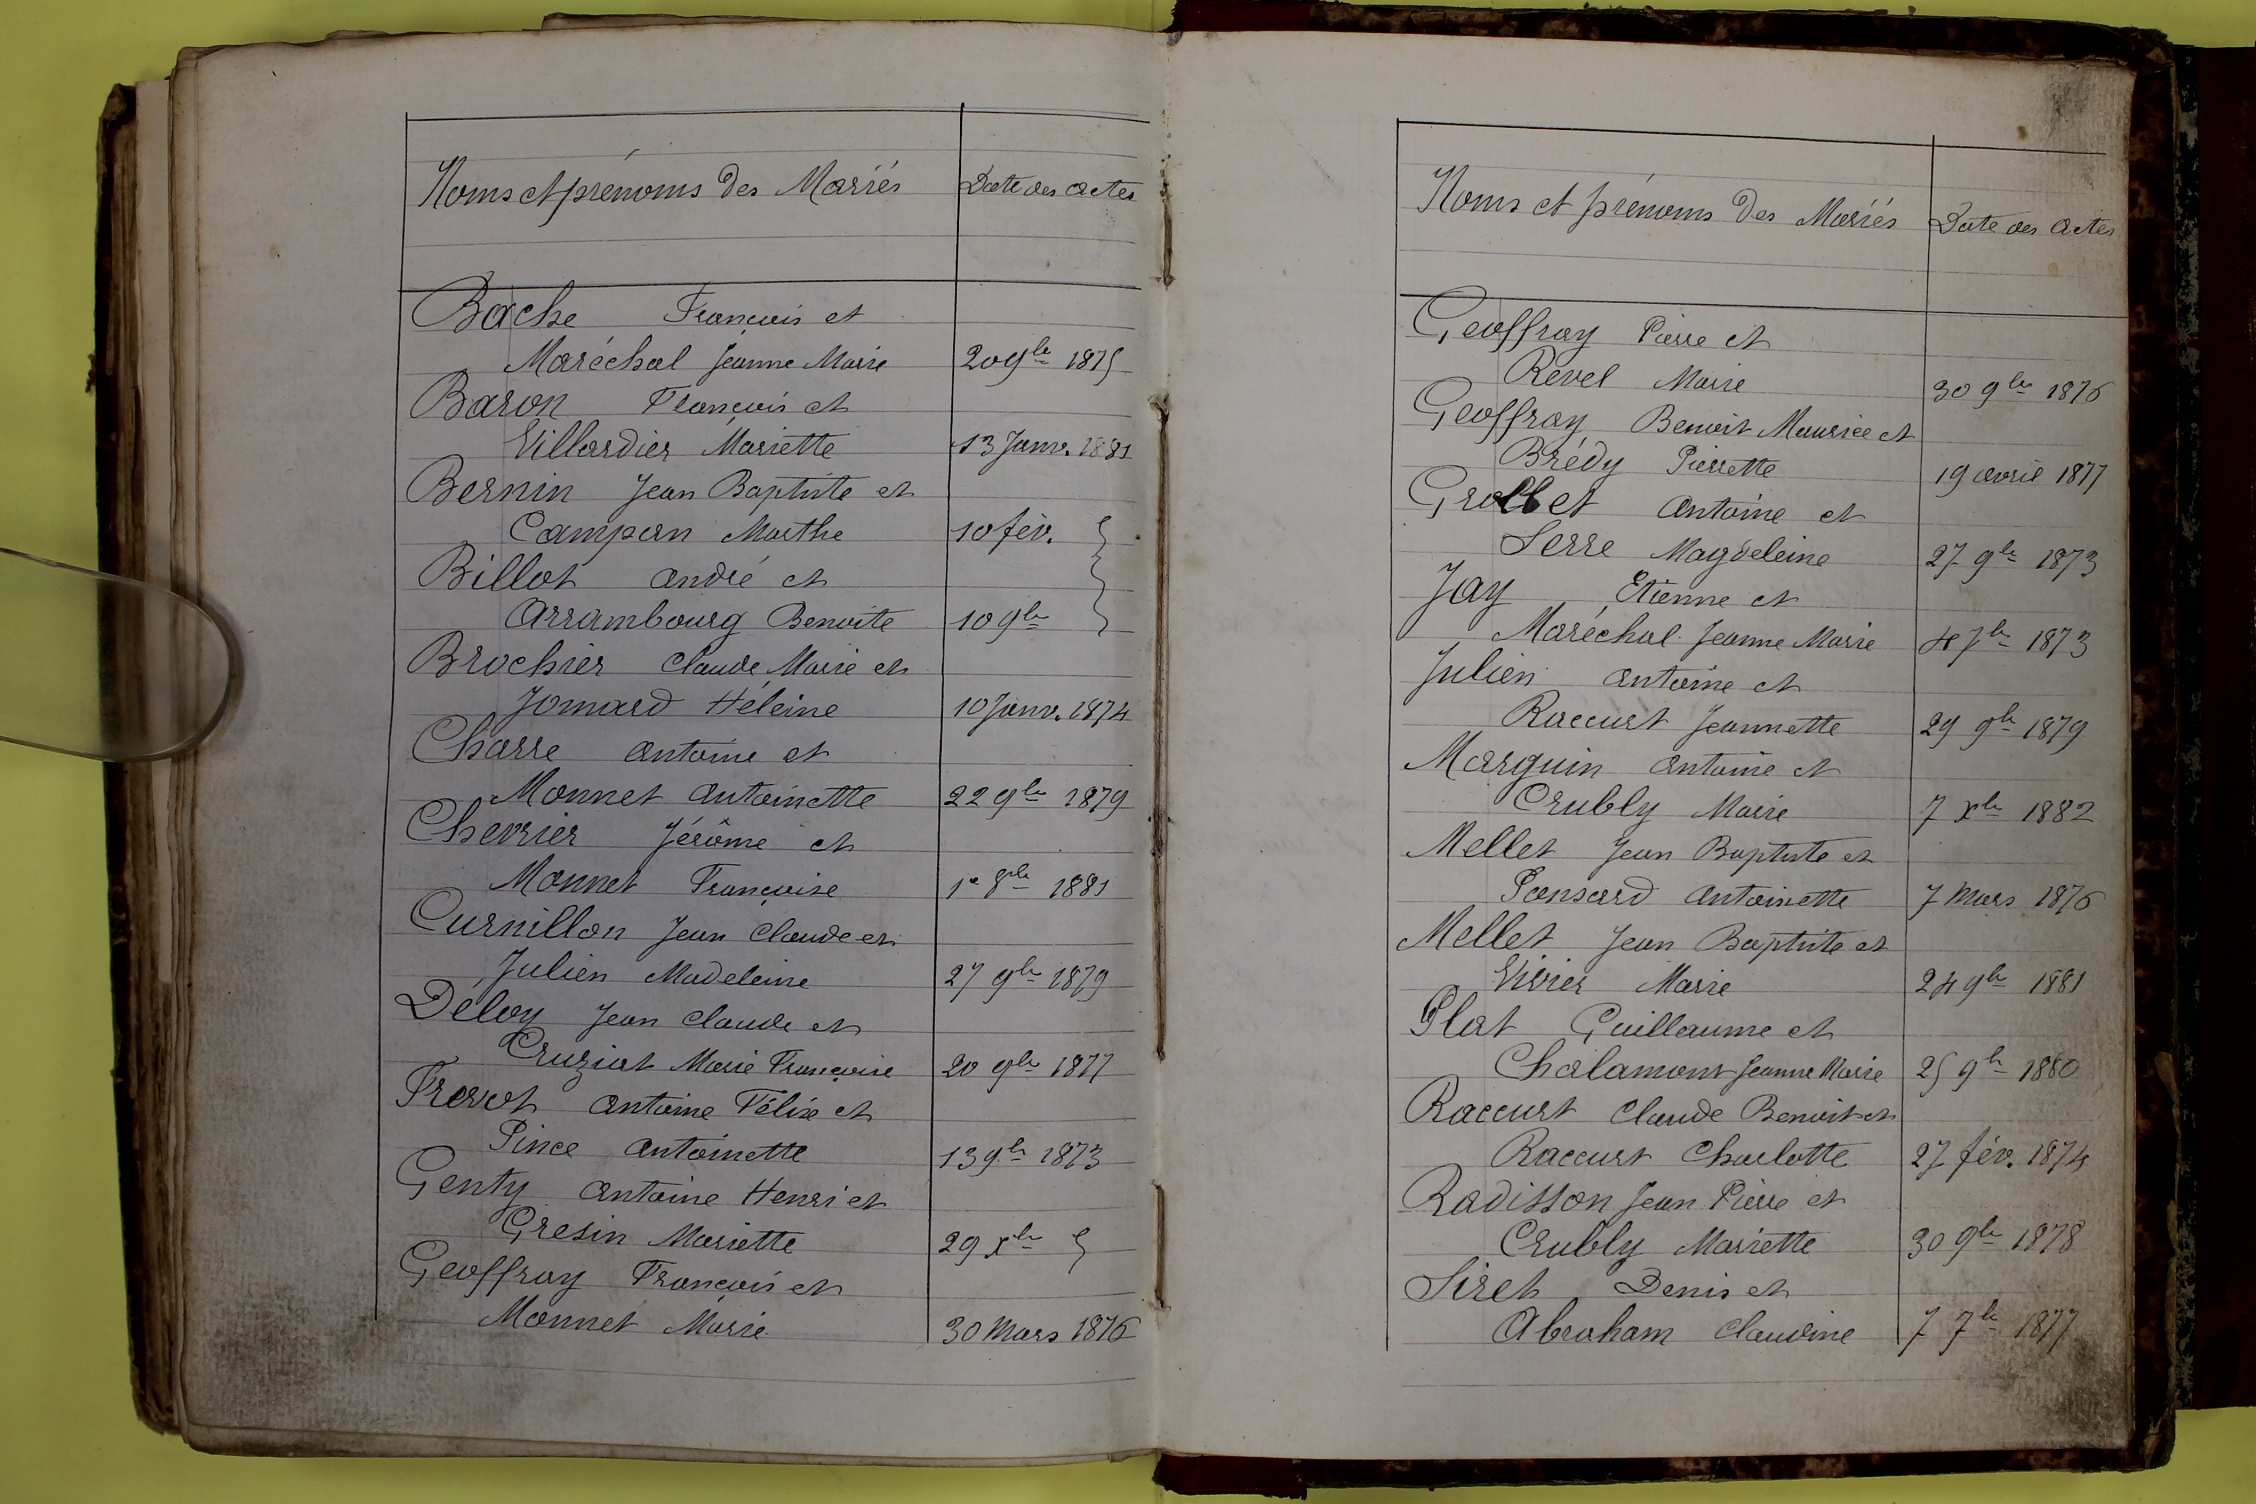 Noms et prénoms des Mariés Date des actes
Bache François et
Maréchal Jeanne Marie 20 9bre 1875
Baron François et
Villardier Mariette 13 Janv. 1881
Bernin Jean Baptiste et
Campan Marthe 10 fév. }
Billot André et
Arrambourg Benoite 10 9bre }
Brochier Claude Marie et
Jomard Héleine 10 Janv. 1874
Charre Antoine et
Monnet Antoinette 22 9bre 1879
Chevrier Jérôme et
Monnet Françoise 1e 8bre 1881
Curnillon Jean Claude et
Julien Madeleine 27 9bre 1879
Déloy Jean Claude et
Cruziat Marie Françoise 20 9bre 1877
Antoine Félix et
Pince Antoinette 13 9bre 1873
Genty Antoine Henri et
Gresin Mariette 29 Xbre }
Geoffray François et
Monnet Marie 30 Mars 1876
Noms et prénoms des Mariés Date des actes
Geoffray Pierre et
Revel Marie 30 9bre 1876
Geoffray Benoit Maurice et
Brédy Pierrette 19 avril 1877
Grollet Antoine et
Serre Magdeleine 27 9bre 1873
Jay Etienne et
Maréchal Jeanne Marie 4 7bre 1873
Julien Antoine et
Raccurt Jeannette 29 9bre 1879
Marguin Antoine et
Crubly Marie 7 Xbre 1882
Mellet Jean Baptiste et
Pansard Antoinette 7 Mars 1876
Mellet Jean Baptiste et
Vivier Marie 24 9bre 1881
Plat Guillaume et
Chalamont Jeanne Marie 25 9bre 1880
Raccurt Claude Benoit et
Raccurt Charlotte 27 fév. 1874
Radisson Jean Pierre et
Crubly Mariette 30 9bre 1878
Siret Denis et
Abraham Claudine 7 7bre 1877